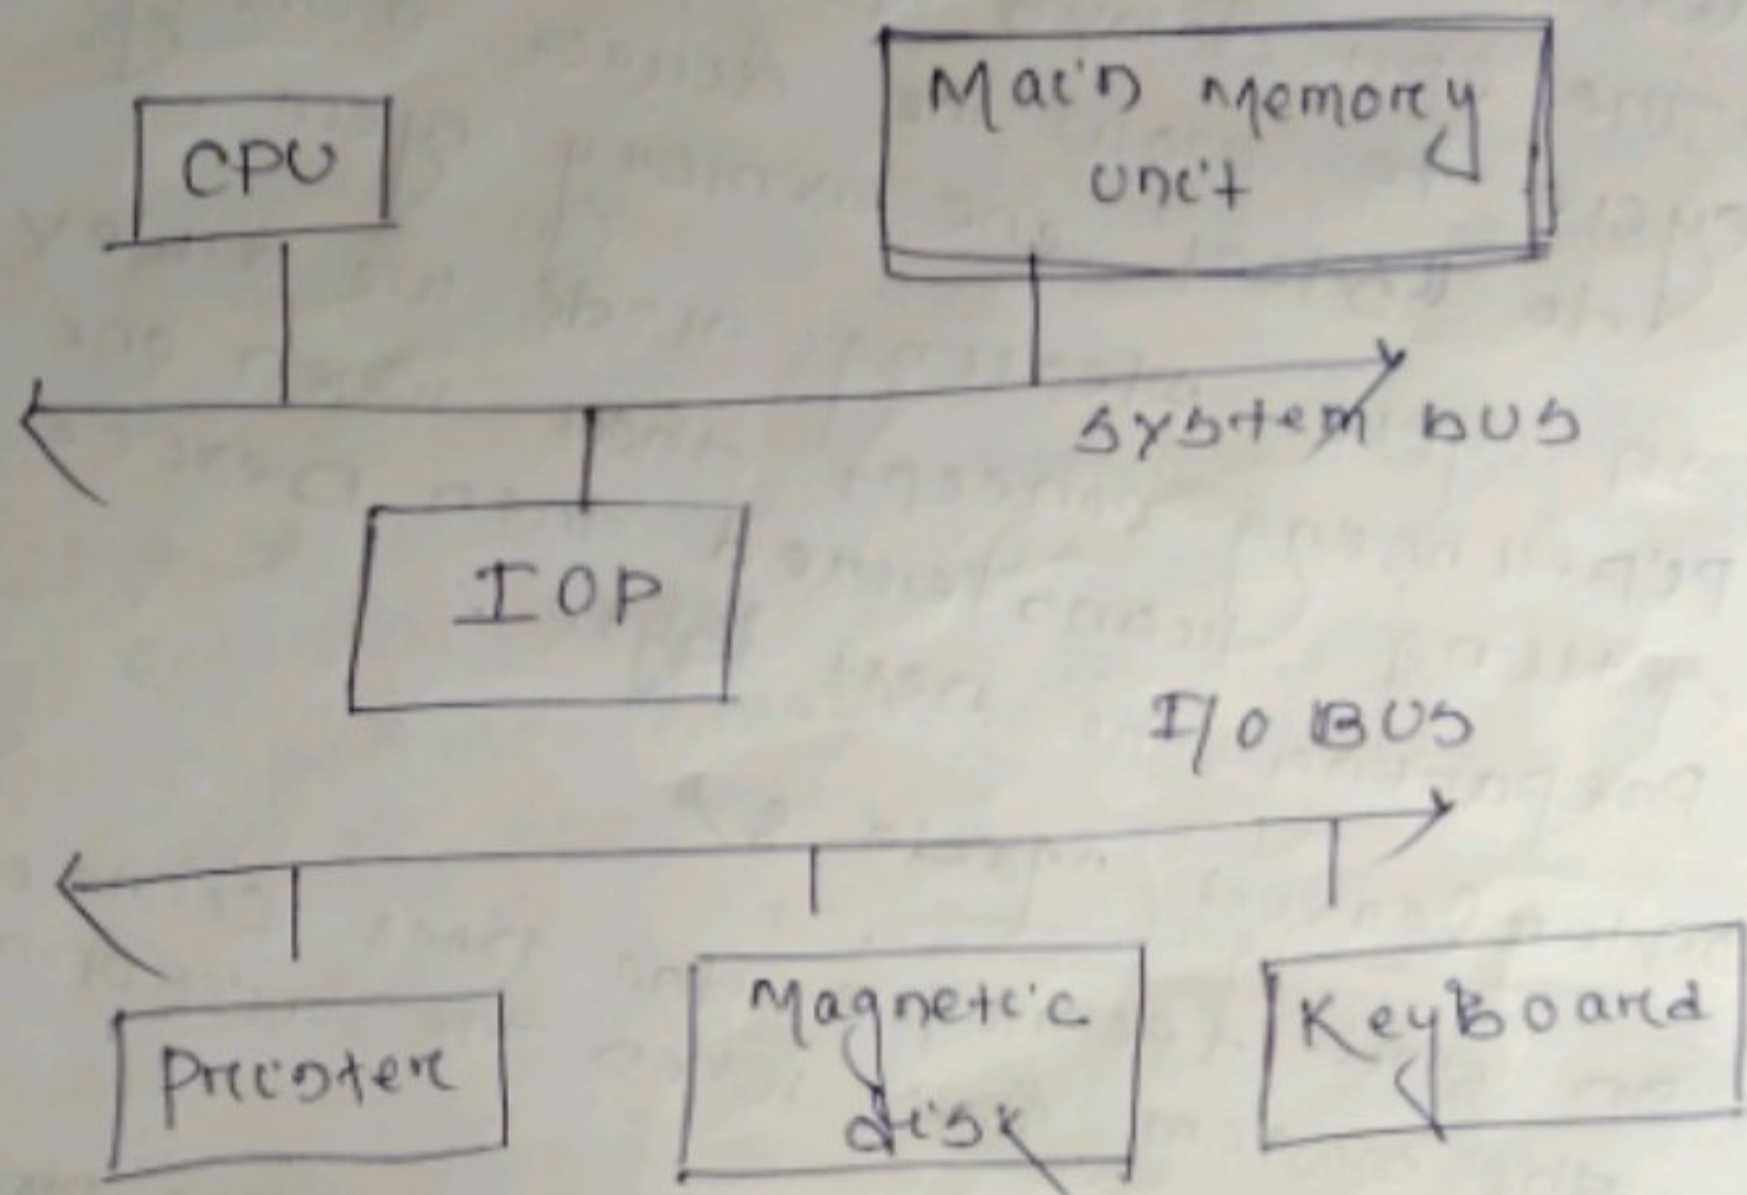 CPU
Main Memory
unit
system bus
IOP
I/O BUS
Printer
Magnetic
disk
KeyBoard